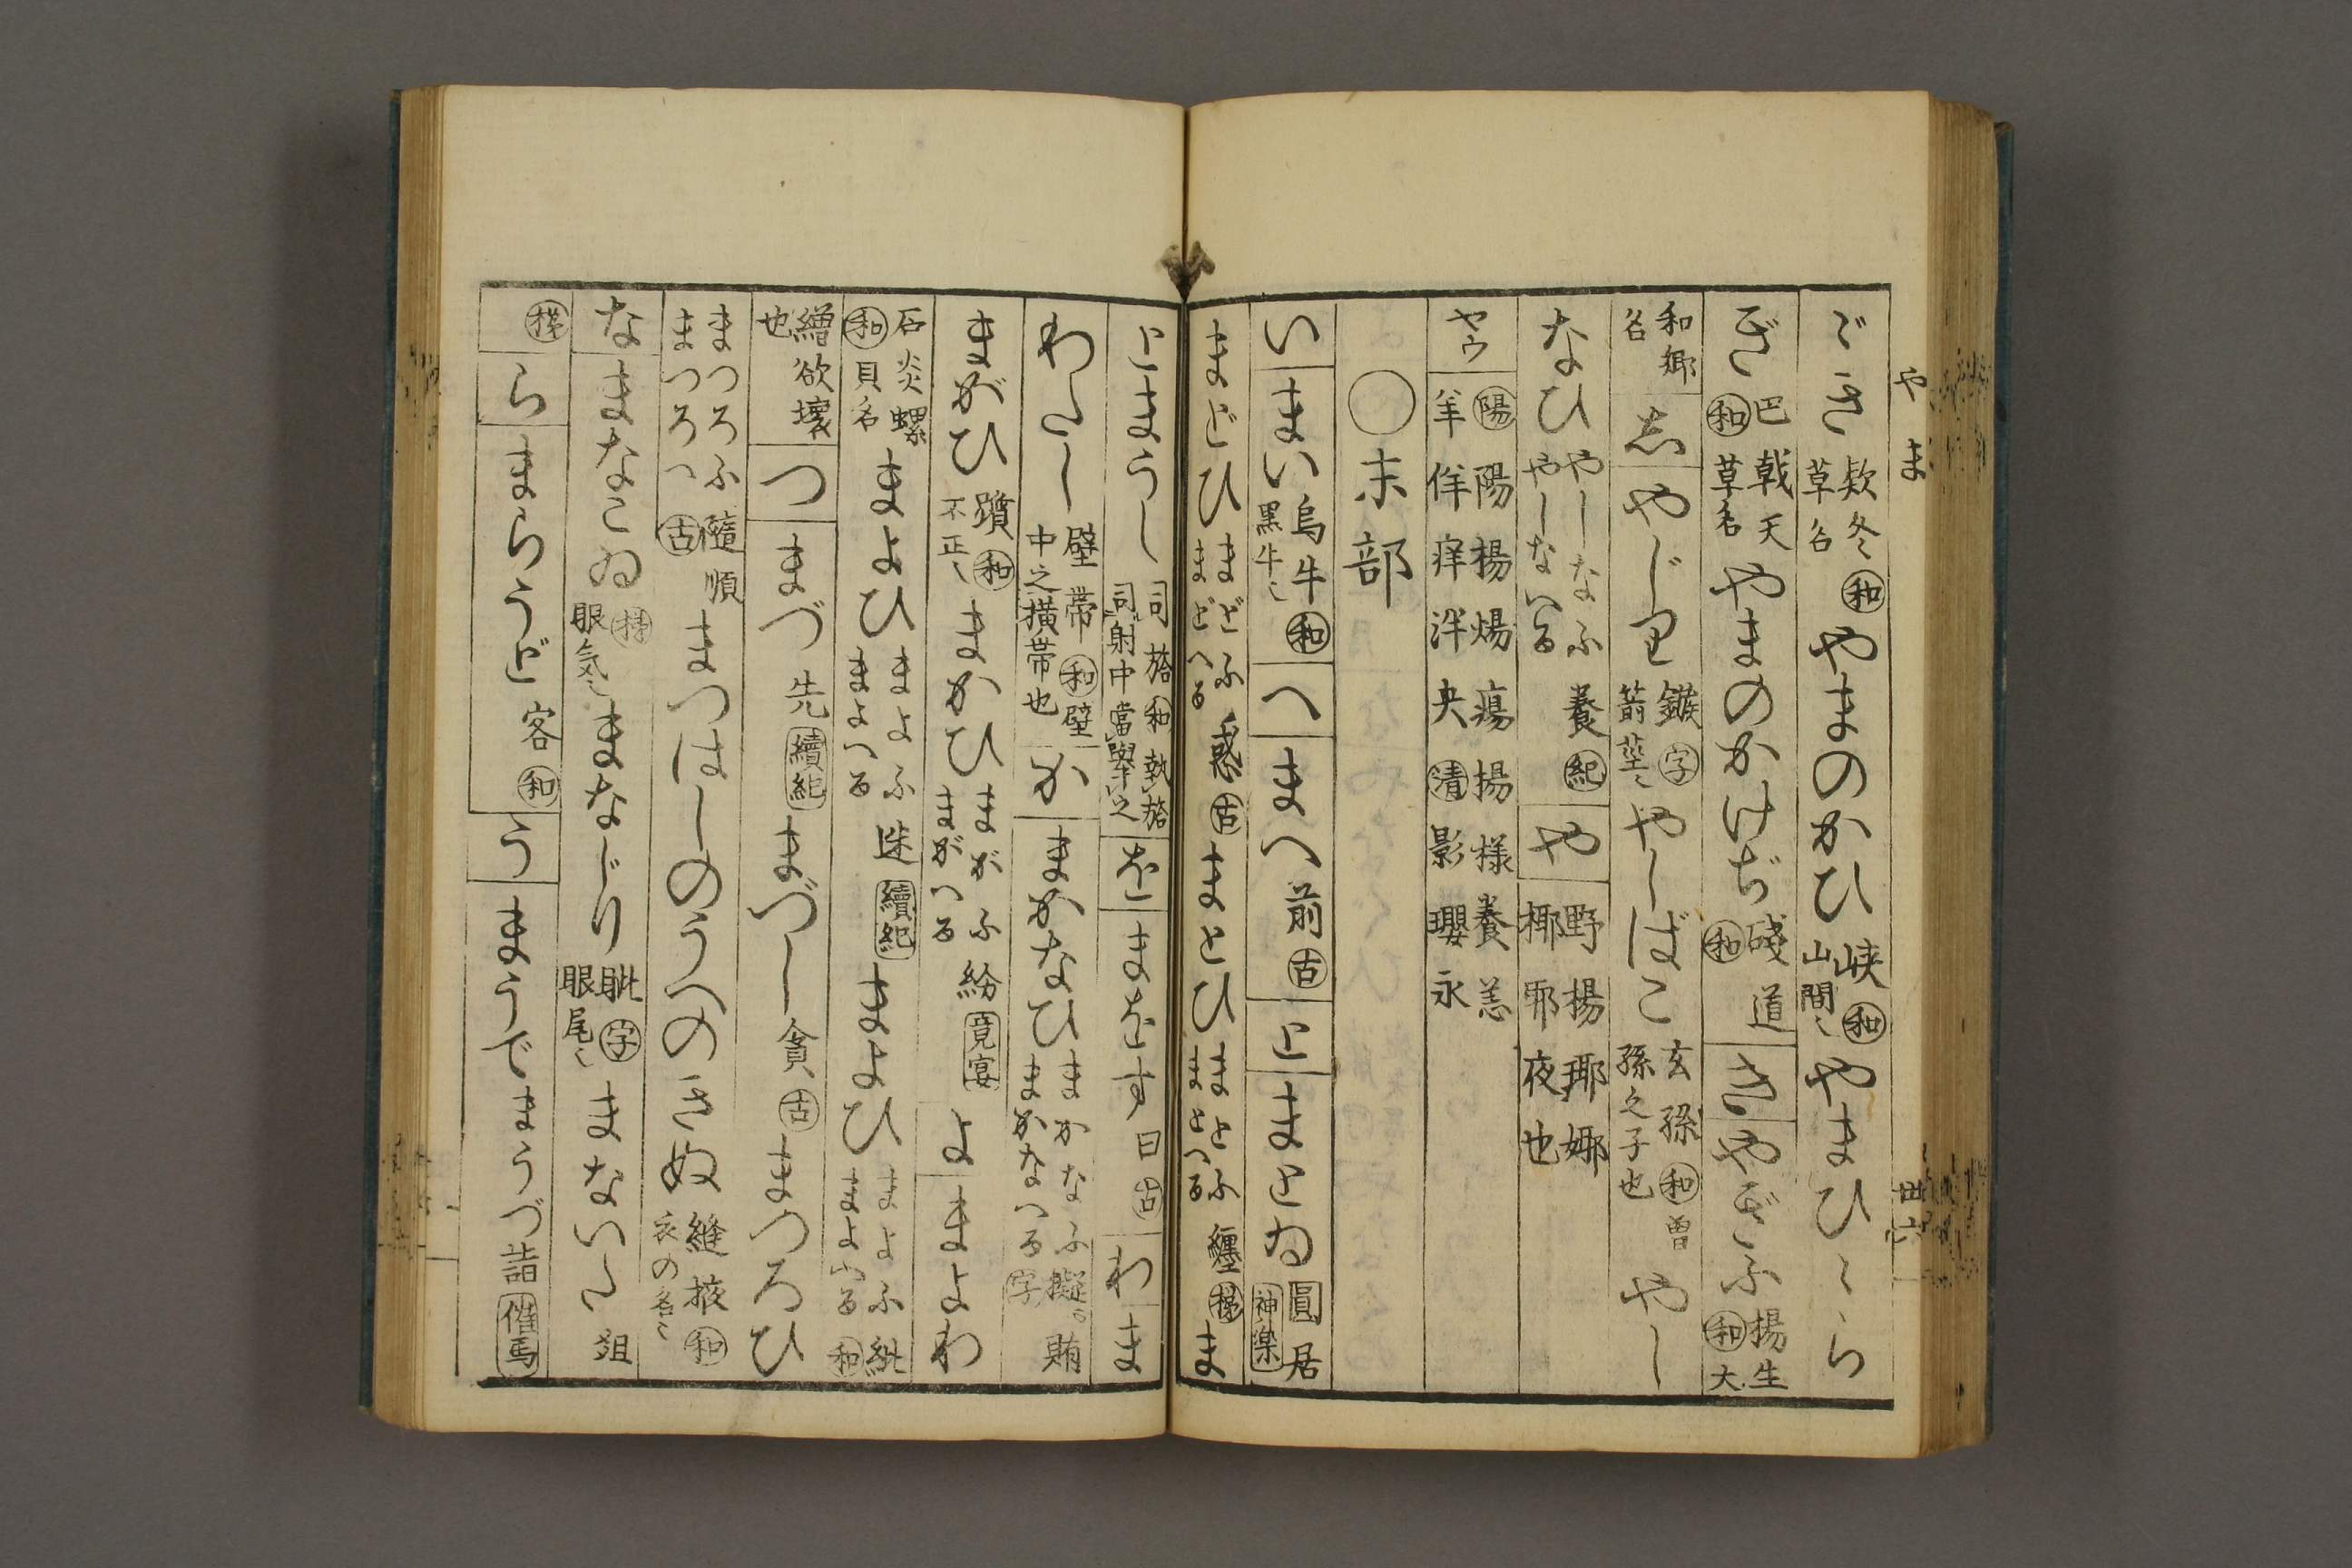 やま
廿六
ぶき 欵冬㊂和 草名 やまのかひ 峽 和 山間〻 やまひゝら
ぎ 巴戟天 和 草名 やまのかけぢ 磴道 和 き やぎふ 楊生 和 大
和郷名 し やじり 鏃 字 箭莖〻 やしはご 玄孫 和 曾孫之子也 やし
なひ やしなふ やしなへる 養 紀 や 野揚瑘娜 椰耶夜也
ヤウ 陽 陽楊煬瘍揚様養恙 羊佯痒洋央 清 影瓔永
〇末部
い まい 烏牛 和 黒牛〻 へ まへ 前 古 と まとゐ 圓居 神楽
まどひ まどふ まどへる 惑 古 まとひ まとふ まとへる 纏 ま
とまうし 司旍 和 執旍司射中當擧之 を まをす 曰 古 わ ま
わたし 壁帯 和 壁中之横帯也 か まかなひ まかなふ まかなへる 擬 賄 字
まがひ 躓 和 不正〻 まがひ まがふ まがへる 紛 竟宴 よ まよわ
石炎螺 和 貝名 まよひ まよふ まよへる 迷 續紀 まよひ まよふ まよへる 紕 和
繒欲壞也 つ まづ 先 續紀 まづし 貪 古 まつろひ
まつろふ まつろへ 隨順 古 まつはしのうへのきぬ 縫掖 和 衣の名〻
な まなこゐ 眼気〻 まなじり 眦 字 眼尾〻 まないた 俎
ら まらうど 客 和 う まうで まうづ 詣 催馬